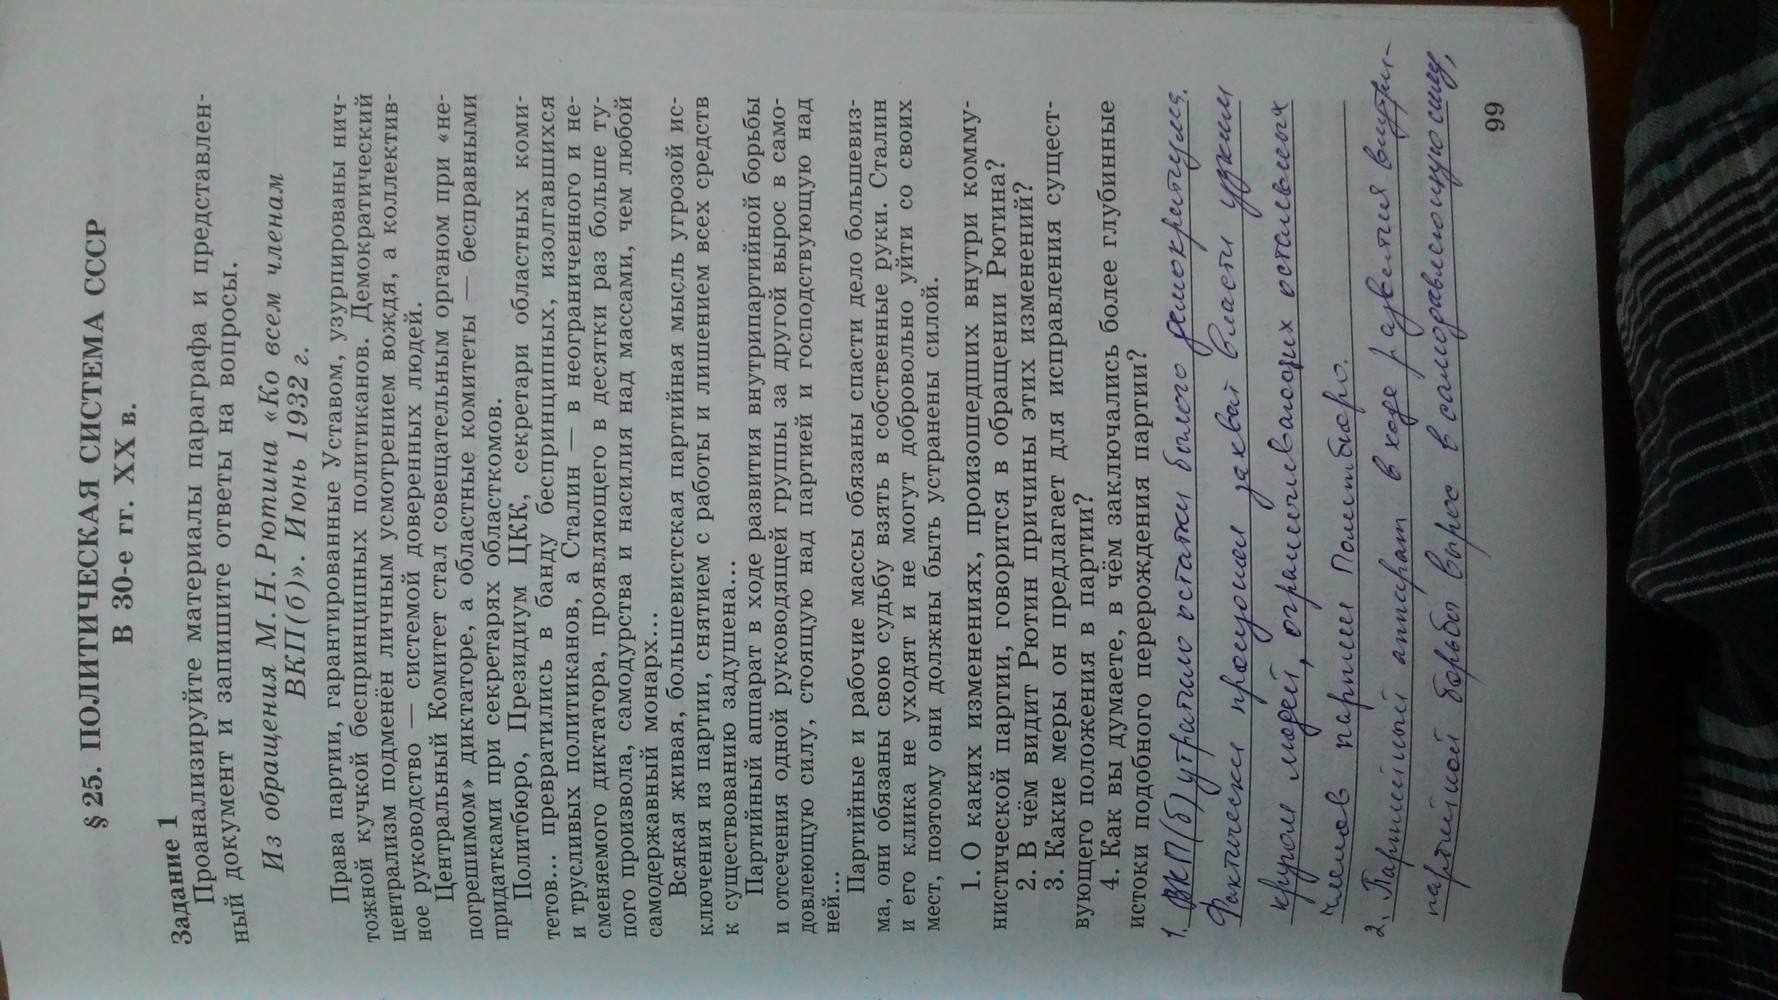 § 25. ПОЛИТИЧЕСКАЯ СИСТЕМА СССР
В 30-е гг. XX в.
Задание 1
Проанализируйте материалы параграфа и представлен-
ный документ и запишите ответы на вопросы.
Из обращения М. Н. Рютина «Ко всем членам
ВКП(б)». Июнь 1932 г.
Права партии, гарантированные Уставом, узурпированы нич-
тожной кучкой беспринципных политиканов. Демократический
централизм подменён личным усмотрением вождя, а коллектив-
ное руководство — системой доверенных людей.
Центральный Комитет стал совещательным органом при «не-
погрешимом» диктаторе, а областные комитеты — бесправными
придатками при секретарях областкомов.
Политбюро, Президиум ЦКК, секретари областных коми-
тетов... превратились в банду беспринципных, изолгавшихся
и трусливых политиканов, а Сталин — в неограниченного и не-
сменяемого диктатора, проявляющего в десятки раз больше ту-
пого произвола, самодурства и насилия над массами, чем любой
самодержавный монарх...
Всякая живая, большевистская партийная мысль угрозой ис-
ключения из партии, снятием с работы и лишением всех средств
к существованию задушена...
Партийный аппарат в ходе развития внутрипартийной борьбы
и отсечения одной руководящей группы за другой вырос в само-
довлеющую силу, стоящую над партией и господствующую над
ней...
Партийные и рабочие массы обязаны спасти дело большевиз-
ма, они обязаны свою судьбу взять в собственные руки. Сталин
и его клика не уходят и не могут добровольно уйти со своих
мест, поэтому они должны быть устранены силой.
1. О каких изменениях, произошедших внутри комму-
нистической партии, говорится в обращении Рютина?
2. В чём видит Рютин причины этих изменений?
3. Какие меры он предлагает для исправления сущест-
вующего положения в партии?
4. Как вы думаете, в чём заключались более глубинные
истоки подобного перерождения партии?
1. ВКП(б) утратило остатки былого демократизма.
Фактически произошёл захват власти узким
кругом людей, ограничивающих остальных
членов партии Политбюро.
2. Партийный аппарат в ходе развития внутри-
партийной борьбы вырос в самоуправляющую силу,
99